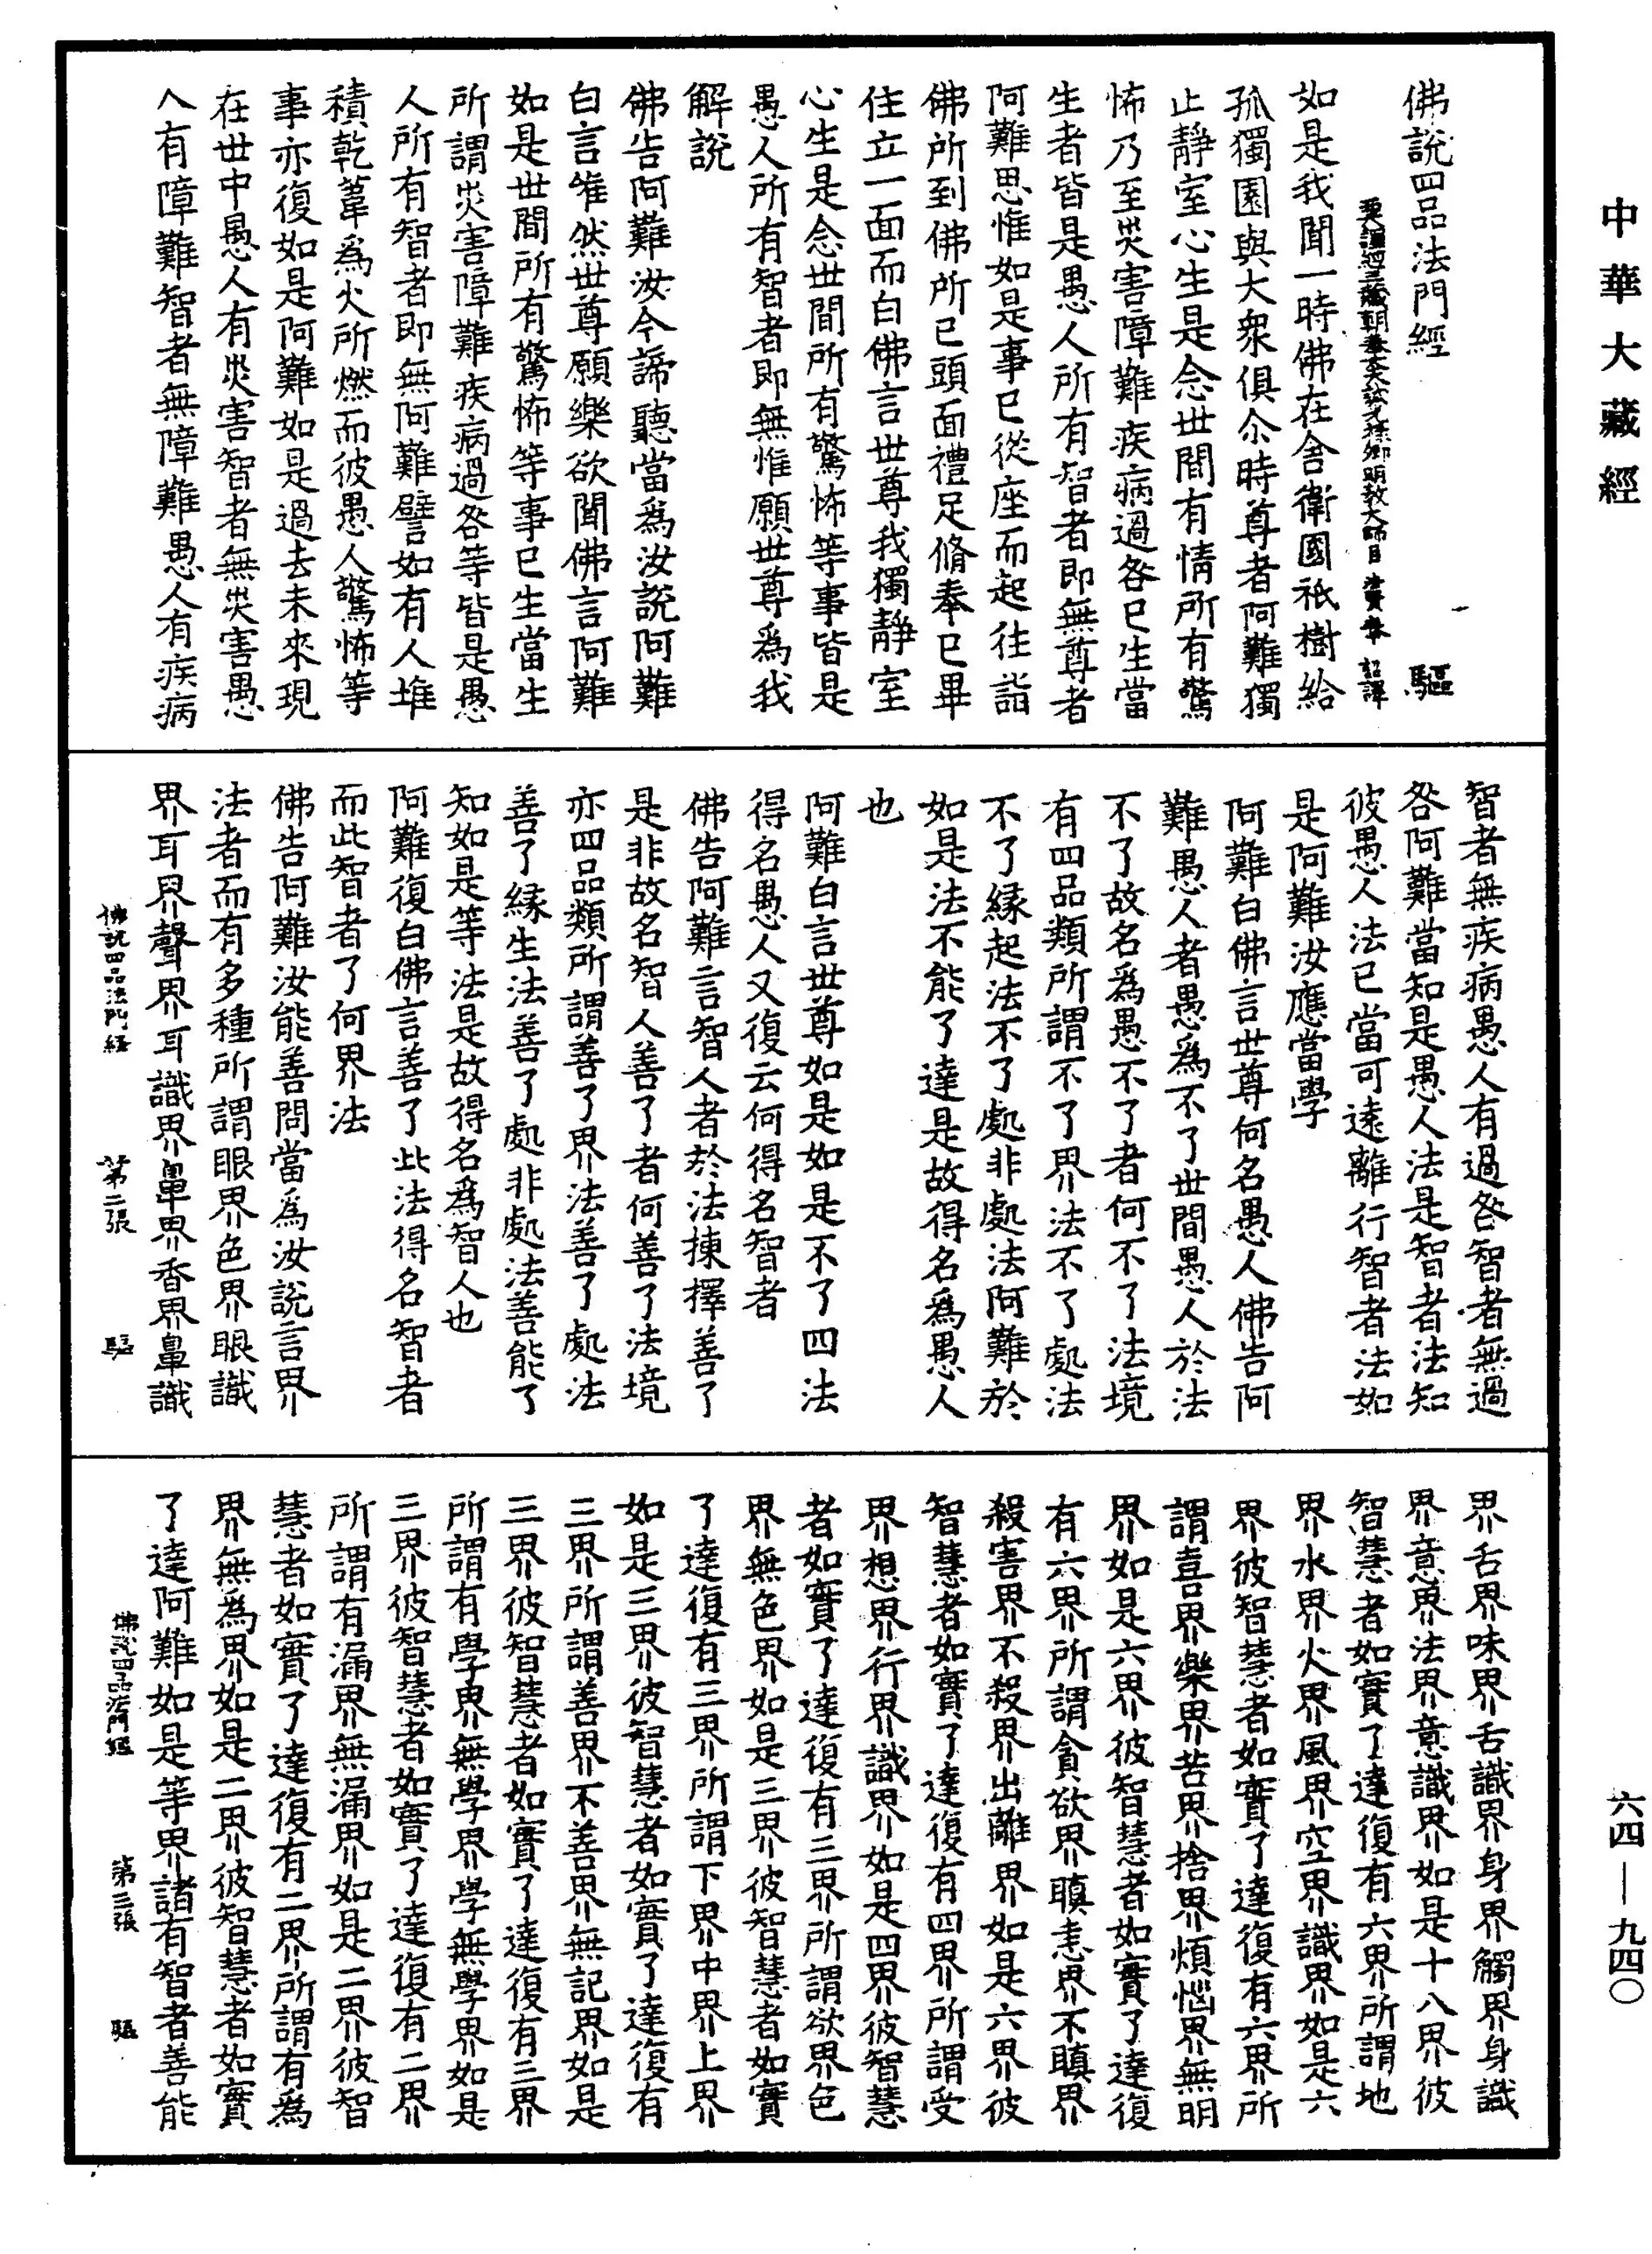 中華大藏經
佛說四品法門經　一　驅
譯經三藏朝奉大夫試光祿卿明教大師臣法賢奉　詔譯
如是我聞一時佛在舍衛國祇樹給
孤獨園與大衆俱尒時尊者阿難獨
止靜室心生是念世間有情所有驚
怖乃至災害障難疾病過咎已生當
生者皆是愚人所有智者即無尊者
阿難思惟如是事已從座而起往詣
佛所到佛所已頭面禮足脩奉已畢
住立一面而白佛言世尊我獨靜室
心生是念世間所有驚怖等事皆是
愚人所有智者即無惟願世尊爲我
解說
佛告阿難汝今諦聽當爲汝說阿難
白言唯然世尊願樂欲聞佛言阿難
如是世間所有驚怖等事已生當生
所謂災害障難疾病過咎等皆是愚
人所有智者即無阿難譬如有人堆
積乾葦爲火所燃而彼愚人驚怖等
事亦復如是阿難如是過去未來現
在世中愚人有災害智者無災害愚
人有障難智者無障難愚人有疾病
智者無疾病愚人有過咎智者無過
咎阿難當知是愚人法是智者法知
彼愚人法已當可遠離行智者法如
是阿難汝應當學
阿難白佛言世尊何名愚人佛告阿
難愚人者愚爲不了世間愚人於法
不了故名爲愚不了者何不了法境
有四品類所謂不了界法不了處法
不了緣起法不了處非處法阿難於
如是法不能了達是故得名爲愚人
也
阿難白言世尊如是如是不了四法
得名愚人又復云何得名智者
佛告阿難言智人者於法揀擇善了
是非故名智人善了者何善了法境
亦四品類所謂善了界法善了處法
善了緣生法善了處非處法善能了
知如是等法是故得名爲智人也
阿難復白佛言善了此法得名智者
而此智者了何界法
佛告阿難汝能善問當爲汝說言界
法者而有多種所謂眼界色界眼識
界耳界聲界耳識界鼻界香界鼻識
佛說四品法門經　第二張　驅
界舌界味界舌識界身界觸界身識
界意界法界意識界如是十八界彼
智慧者如實了達復有六界所謂地
界水界火界風界空界識界如是六
界彼智慧者如實了達復有六界所
謂喜界樂界苦界捨界煩惱界無明
界如是六界彼智慧者如實了達復
有六界所謂貪欲界瞋恚界不瞋界
殺害界不殺界出離界如是六界彼
智慧者如實了達復有四界所謂受
界想界行界識界如是四界彼智慧
者如實了達復有三界所謂欲界色
界無色界如是三界彼智慧者如實
了達復有三界所謂下界中界上界
如是三界彼智慧者如實了達復有
三界所謂善界不善界無記界如是
三界彼智慧者如實了達復有三界
所謂有學界無學界學無學界如是
三界彼智慧者如實了達復有二界
所謂有漏界無漏界如是二界彼智
慧者如實了達復有二界所謂有爲
界無爲界如是二界彼智慧者如實
了達阿難如是等界諸有智者善能
佛說四品法門經　第三張　驅
六四—九四〇